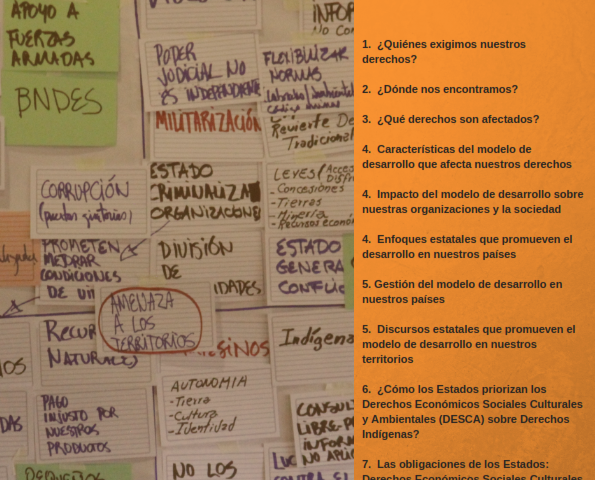 APOYO A
FUERZAS
ARMADAS
BNDES
INFOR
No Co
PODER
JUDICIAL NO
ES INDEPENDIENTE
FLEXIBILIZAR
NORMAS
MILITARIZACIÓN
Revierte De
Tradicional
CORRUPCIÓN
ESTADO
CRIMINALIZA
ORGANIZACIONE
LEYES
- Concesiones
- Tierras
- Minería
- Recursos econó
PROMETEN
MEJORAR
CONDICIONES
DE VI
DIVISIÓN
DE
IDADES
ESTADO
GENERA
CONFLIC
AMENAZA
A LOS
TERRITORIOS
RECUR
NATURALES
SINOS
Indígena
PAGO
INJUSTO POR
NUESTROS
PRODUCTOS
AUTONOMIA
- Tierra
- Cultura
- Identidad
CONSULT
LIBRE-P
INFORM
NO APLIC
NO LOS
1. ¿Quiénes exigimos nuestros
derechos?
2. ¿Dónde nos encontramos?
3. ¿Qué derechos son afectados?
4. Características del modelo de
desarrollo que afecta nuestros derechos
4. Impacto del modelo de desarrollo sobre
nuestras organizaciones y la sociedad
4. Enfoques estatales que promueven el
desarrollo en nuestros países
5. Gestión del modelo de desarrollo en
nuestros países
5. Discursos estatales que promueven el
modelo de desarrollo en nuestros
territorios
6. ¿Cómo los Estados priorizan los
Derechos Económicos Sociales Culturales
y Ambientales (DESCA) sobre Derechos
Indígenas?
7. Las obligaciones de los Estados:
Derechos Económicos Sociales Culturales